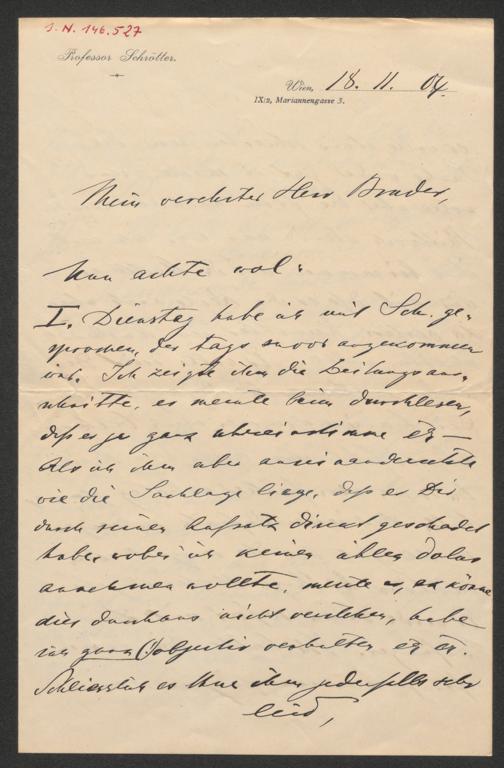 J. N. 146.527
Professor Schrötter.
Wien, 18. 11. 04.
IX/2, Mariannengasse 3.
Mein verehrter Herr Bruder,
Nun achte wol:
I. Dienstag habe ich mit Sch. ge-
sprochen, der tags zuvor angekommen
war. Ich zeigte ihm die Zeitungsaus-
schnitte, er meinte beim Durchlesen,
dass er ja ganz übereinstimme etz —
Als ich ihm aber auseinandersetzte
wie die Sachlage liege, dass er Dir
durch seinen Aufsatz direct geschadet
habe, wobei ich keinen üblen dolus
annehmen wollte, meinte er, er könne
dies durchaus nicht verstehen, habe
sich ganz (!) objectiv verhalten etz etz.
Schliesslich es thue ihm jedenfalls sehr
leid,